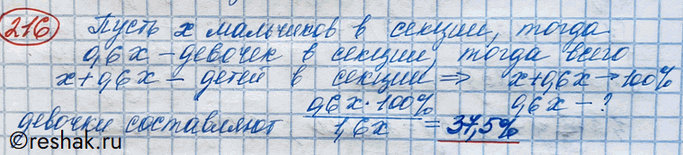 216 Пусть x мальчиков в секции, тогда
0,6x – девочек в секции, тогда всего
x+0,6x – детей в секции ⇒ x+0,6x → 100%
0,6x – ?
девочки составляют 0,6x·100% / 1,6x = 37,5%
©reshak.ru